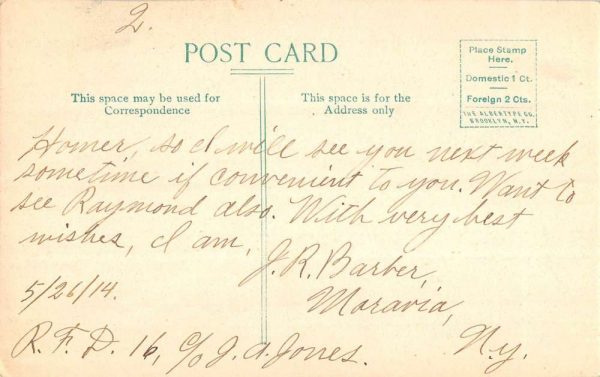 2.
POST CARD
Place Stamp
Here.
Domestic 1 Ct.
Foreign 2 Cts.
THE ALBERTYPE CO.
BROOKLYN, N.Y.
This space may be used for
Correspondence
This space is for the
Address only
Homer, so I will see you next week
sometime if convenient to you. Want to
see Raymond also. With very best
wishes, I am,
J. R. Barber,
5/26/14.
Moravia,
N.y.
R. F. D. 16, c/o J. A. Jones.